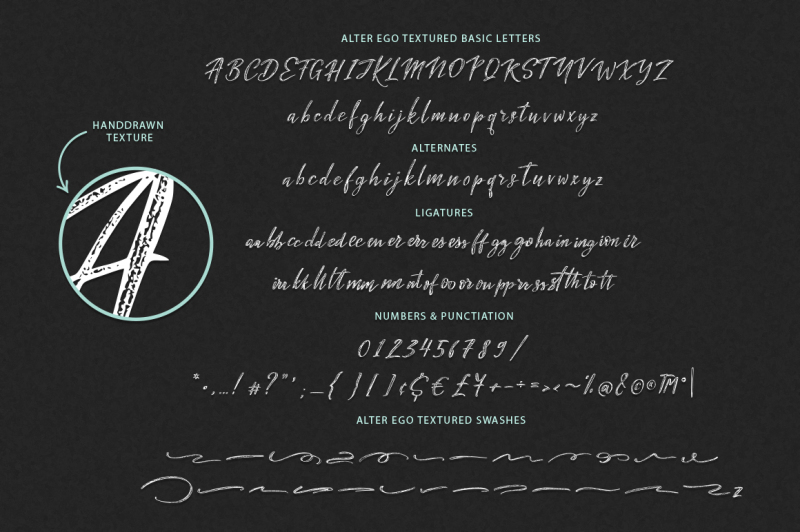 ALTER EGO TEXTURED BASIC LETTERS
ABCDEFGHIJKLMNOPQRSTUVWXYZ
abcdefghijklmnopqrstuvwxyz
HANDDRAWN
TEXTURE
A
ALTERNATES
abcdefghijklmnopqrstuvwxyz
LIGATURES
aa bb cc dd ed ee en er err es ess ff gg go ha in ing ion ir
NUMBERS & PUNCTIATION
0123456789/
ALTER EGO TEXTURED SWASHES